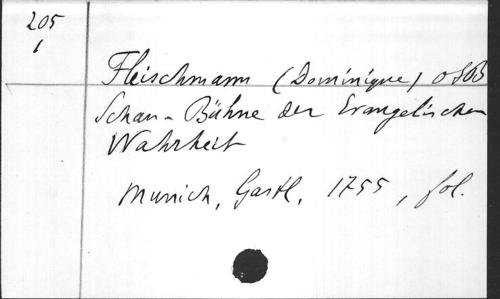 205
1
Fleischmann (Dominique) OSB
Schau-Bühne der Evangelischen
Wahrheit
Munich, Gastl, 1755, fol.